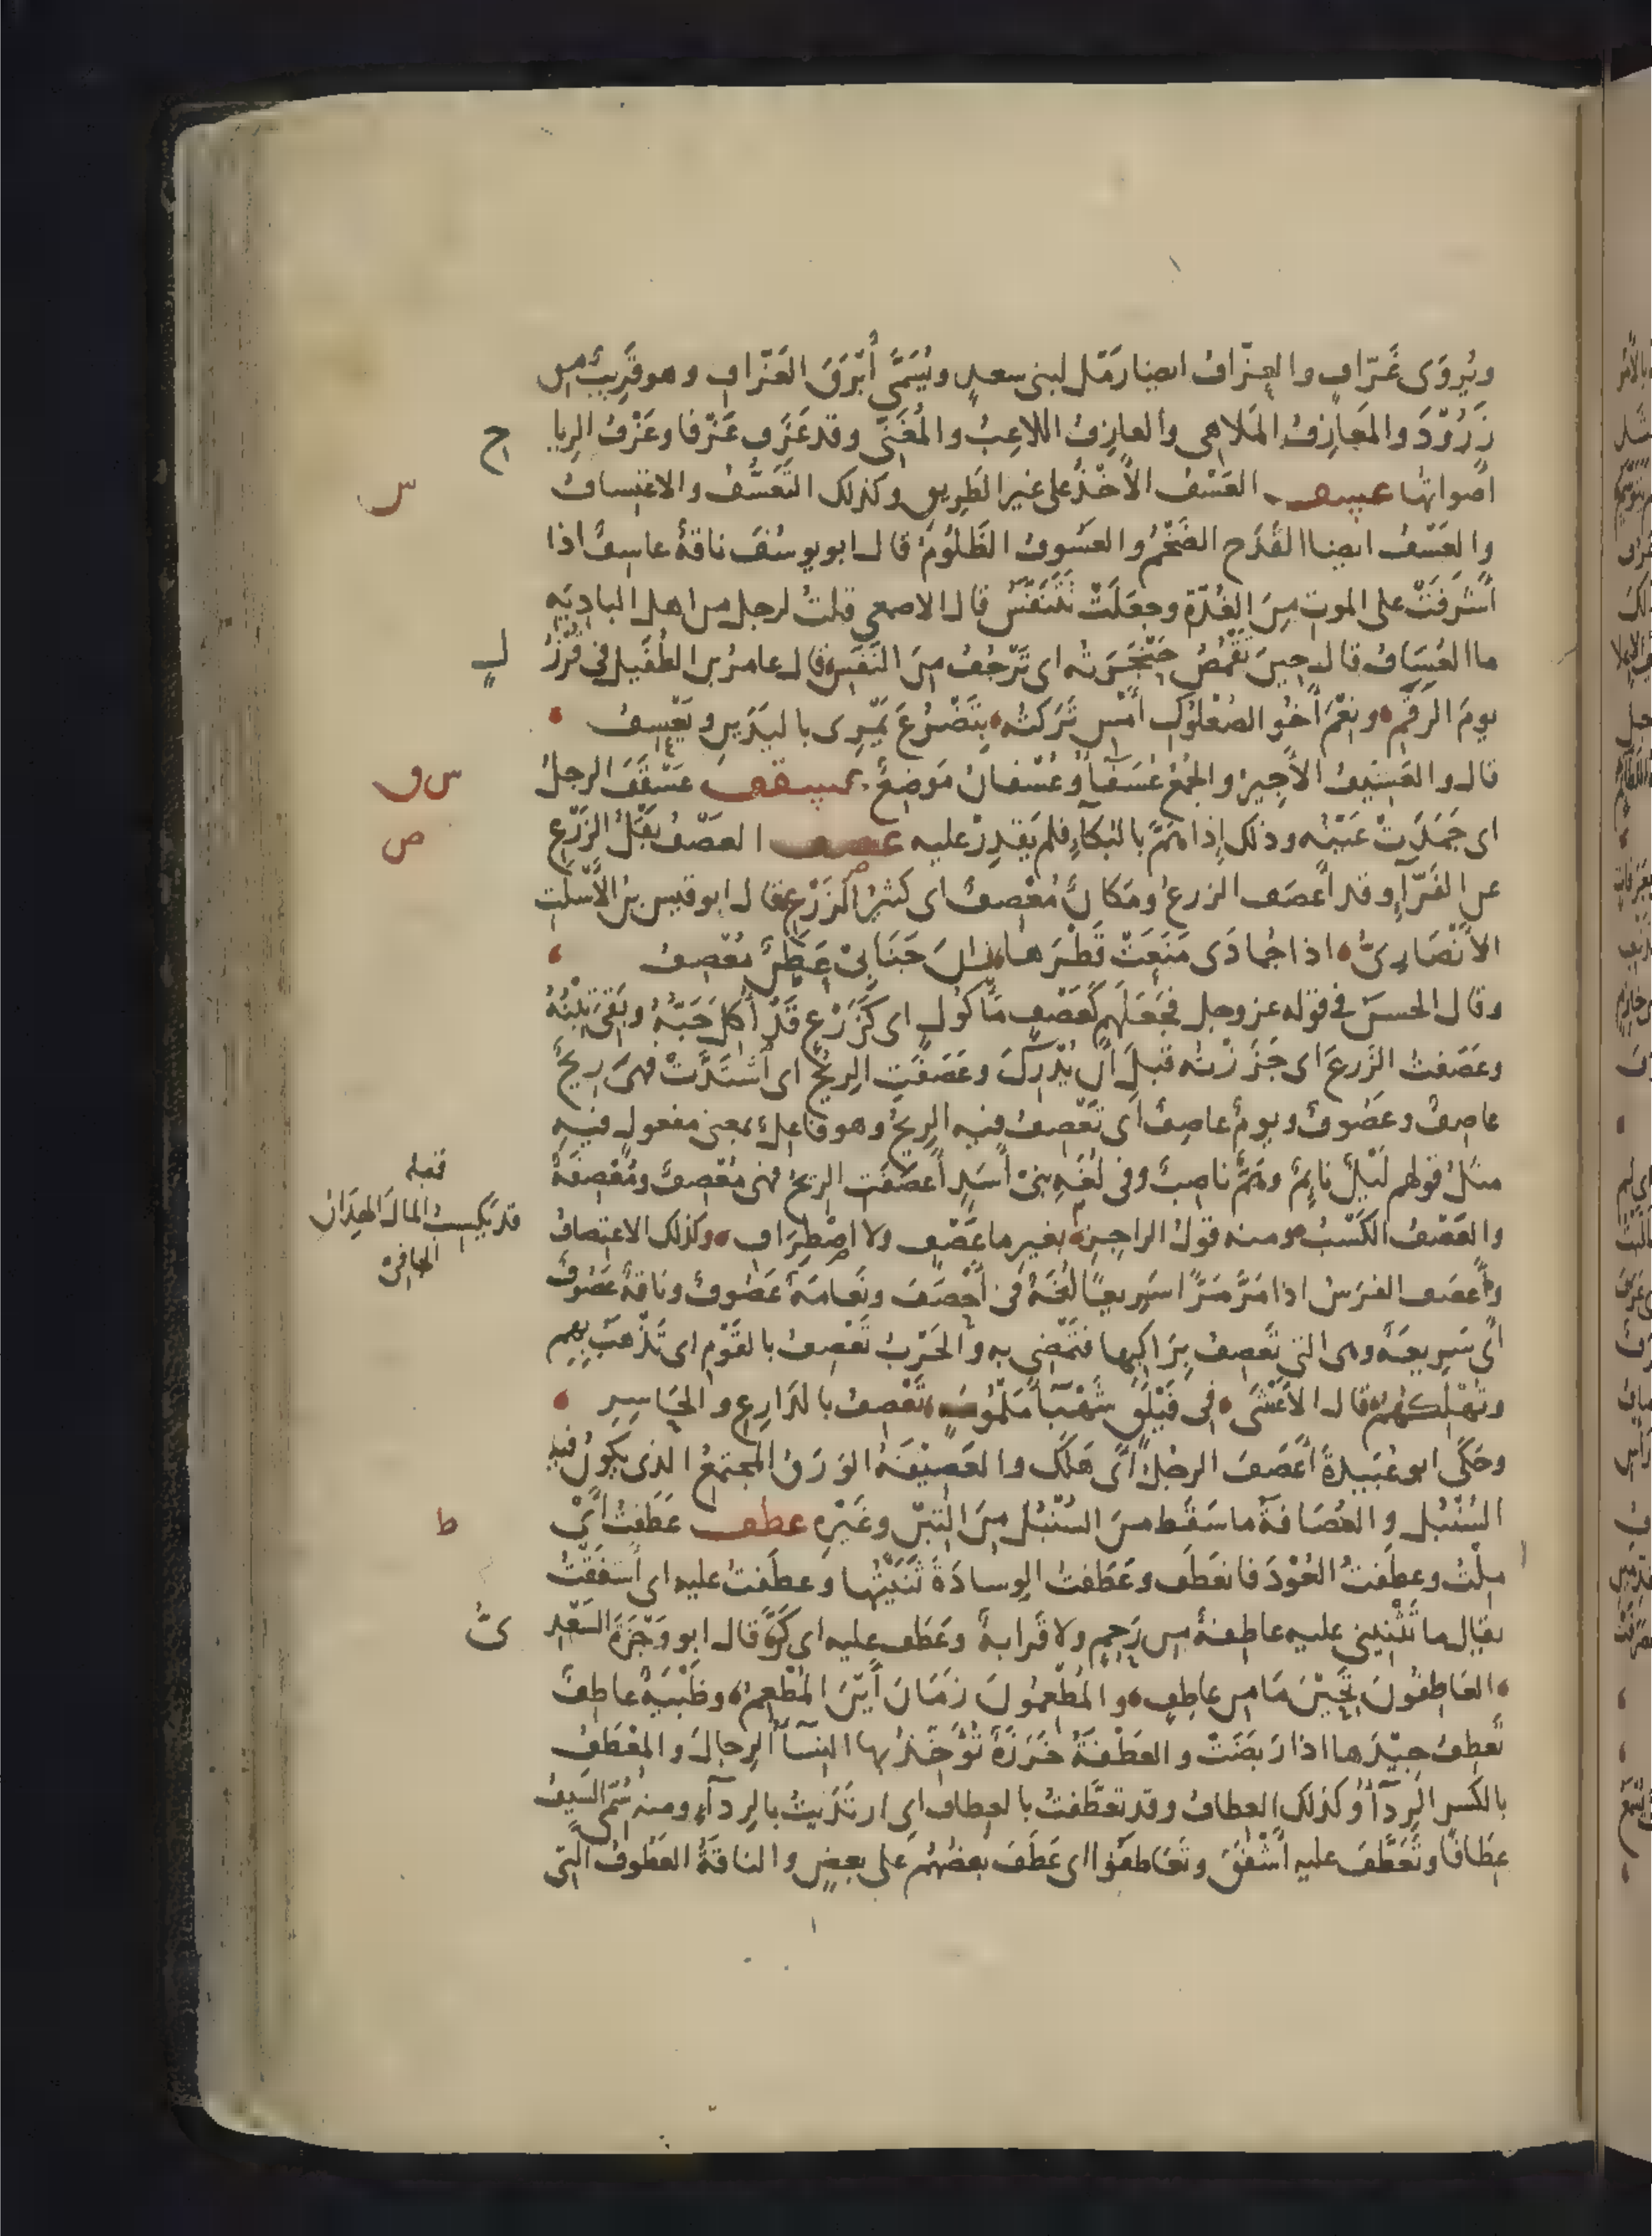 ويُروَى غَرّافٍ والعزّافُ ايضا رَمْل لبنى سعدٍ ويُسَمَّى أَبْرَقَ العَزّافِ وهو قَرِيبٌ من
زَرُوْدَ والمَعازِفُ المَلاهى والعازِفُ اللاعِبُ والمُغَنّى وقد عَزَف عَزْفا وعَزْفُ الريا
ح
اصواتها عسف العَسْفُ الأَخْذُ على غير الطَريقِ وكذلك التَعَسُّفُ والاعْتِسافُ
س
والعَسْفُ ايضا القَدَح الضَخْمُ والعَسُوفُ الظَلُوْمُ قال ابو يوسُفَ ناقةٌ عاسِفٌ اذا
أَشرَفَتْ على الموت مِنَ الغُدّة وجعَلَتْ تَتَنَفَّسُ قال الاصمعى قلتُ لرجل من اهل البادِيَهِ
ما العُسَافُ قال حِينَ تَقْمُصُ حَنْجَرَته اى تَرْجُفُ مِنَ النَفَسِ قال عامرُ بن الطُفَيل فى قُرْزُ
لٍ
يومَ الرَقَمِ ونِعْمَ أخُو الصُعْلُوْكِ أَمْسِ تَرَكتُه بِتَضْرُعَ يَمْرِى باليَدَيِن ويَعْسِفُ
قال والعَسِيْفُ الأَجِيرُ والجَمْعُ عُسَفَآءُ وعُسْفانُ مَوضِعٌ عسقف عَسْقَفَ الرجلُ
س ق
اى جَمَدَتْ عَيْنُه وذلك إِذا هَمَّ بالبُكآءِ فلم يَقدِرْ عليه عصف العَصْفُ بَقْلُ الزَرْعِ
ص
عن الفَرّآءِ وقد أَعصَف الزرعُ ومَكانٌ مُعْصِفٌ اى كثيرُ الزَرْعِ قال ابو قيس بنُ الأَسْلَت
الأَنْصَارِىُّ اذا جُمادَى مَنَعَتْ قَطْرَها زانَ جَنَابِىْ عَطَنٌ مُعْصِفُ
وقال الحسنُ فى قوله عز وجل فجَعَلَهم كَعَصْفٍ مَأكُولٍ اى كَزَرْعٍ قَدْ أُكِلَ حَبُّهُ وبَقِىَ تِبْنُهُ
وعَصَفتُ الزَرعَ اى جَزَزْتُه قبلَ أَن يُدْرِكَ وعَصَفَتِ الرِيْحُ اى اشْتَدَّتْ فهىَ رِيْحٌ
عاصِفٌ وعَصُوفٌ ويومٌ عاصِفٌ اى تَعْصِفُ فيه الرِيحُ وهو فاعِلٌ بمعنى مفعولٍ فيهِ
مثلُ قولهم لَيْلٌ نائِمٌ وهَمٌّ ناصِبٌ وفى لُغَهِ بنىْ أَسَدٍ أَعصَفَتِ الريحُ فهى مُعْصِفٌ ومُعْصِفَةٌ
والعَصْفُ الكَسْبُ ومنه قولُ الراجِزِ بغيرِ ما عَصْفٍ ولا اصْطِرَافِ وكذلك الاعتِصافُ
قبله
قد يَكسِبُ المالَ الهِدَانُ
الجافىْ
وأَعصَف الفرَسُ اذا مَرَّ مَرًّا سَرِيعًا لُغَةٌ فى أَحْصَفَ ونَعامَةٌ عَصُوفٌ وناقةٌ عَصُوفٌ
أى سَرِيعَةٌ وهى التى تَعصِفُ بِرَاكبِها فتَمْضِى به والحَرْبُ تَعْصِفُ بالقَوْمِ اى تَذْهَبُ بِهِم
وتُهْلِكُهُمْ قال الأَعْشَى فى فَيْلَقٍ شَهْبَآءَ مَلْمُوْمَةٍ تَعْصِفُ بالدَارِعِ والحاسِرِ
وحَكَى ابو عُبَيدةَ أَعصَفَ الرجُلُ أَىْ هَلَكَ والعَصِيْفَةُ الوَرَقُ المجتمِعُ الذى يَكونُ فيهِ
السُنْبُل والعُصَافةُ ما سَقَط من السُنْبُلِ مِنَ التِبْن وغَيْرِهِ عطف عَطَفتُ أَىْ
ط
مِلْتُ وعطَفتُ العُوْدَ فانعَطَف وعَطَفتُ الوِسادَةَ ثَنَيْتُها وعطَفتُ عليه اى أَشفَقْتُ
يقال ما تَثْنِيْنى عليه عاطِفةٌ من رَحِمٍ ولا قَرابةٌ وعَطَف عليه اى كَرَّ قال ابو وَجْزَةَ السَعْدِ
ىُّ
العَاطِفُونَ تَحِيْنَ مَا مِن عاطِفٍ والمُطْعِمُونَ زَمَانَ أَيْنَ المُطْعِمُ وظَبْيَةٌ عاطِفٌ
تَعطِفُ جِيْدَها اذا رَبَضَتْ والعَطْفَةُ خَرَزَةٌ تُؤَخِّذُ بها النِسآءُ الرِجالَ والمِعْطَفُ
بالكسر الرِدآءُ وكذلك العِطافُ وقد تعطَّفتُ بالعِطافِ اى ارتَدَيتُ بالرِدآءِ ومنه سُمّى السَيفُ
عِطَافًا وتَعَطَّفَ عليه أَشْفَقَ وتَعَاطَفُوْا اى عَطَفَ بَعضُهم على بعضٍ والناقَةُ العَطُوفُ التى